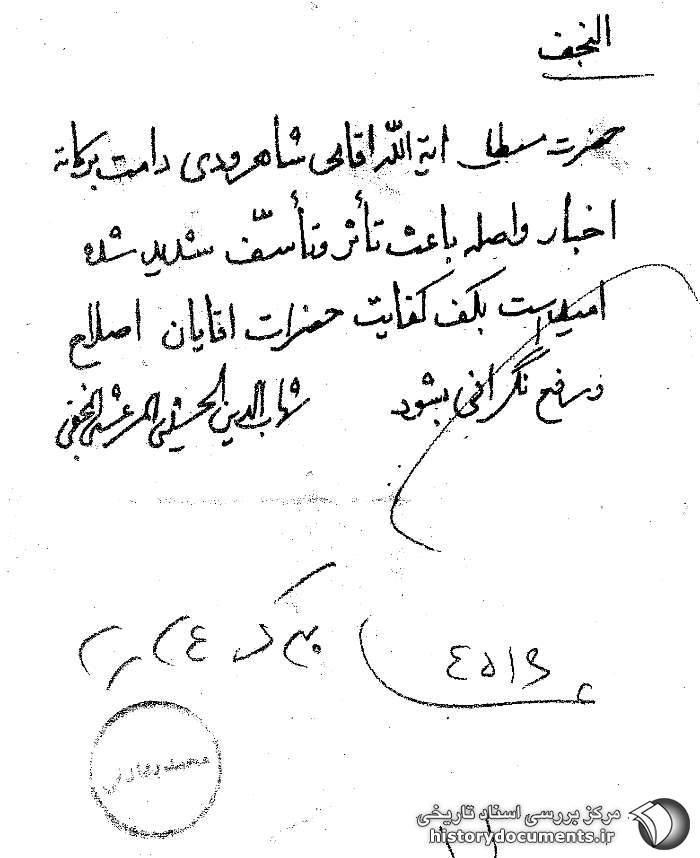 النجف
حضرت مستطاب ایة الله اقای شاهرودی دامت برکاته
اخبار واصله باعث تأثر و تأسّف شدید شده
امیداست بکف کفایت حضرات اقایان اصلاح
و رفع نگرانی بشود شهاب الدین الحسینی المرعشی النجفی
مرکز بررسی اسناد تاریخی
historydocuments.ir